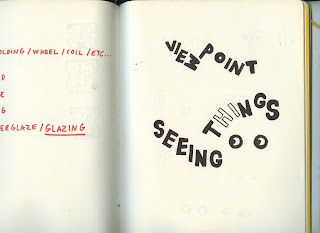 OLDING / WHEEL / COIL / ETC...
D
E
G
ERGLAZE / GLAZING
VIEW POINT
SEEING THINGS